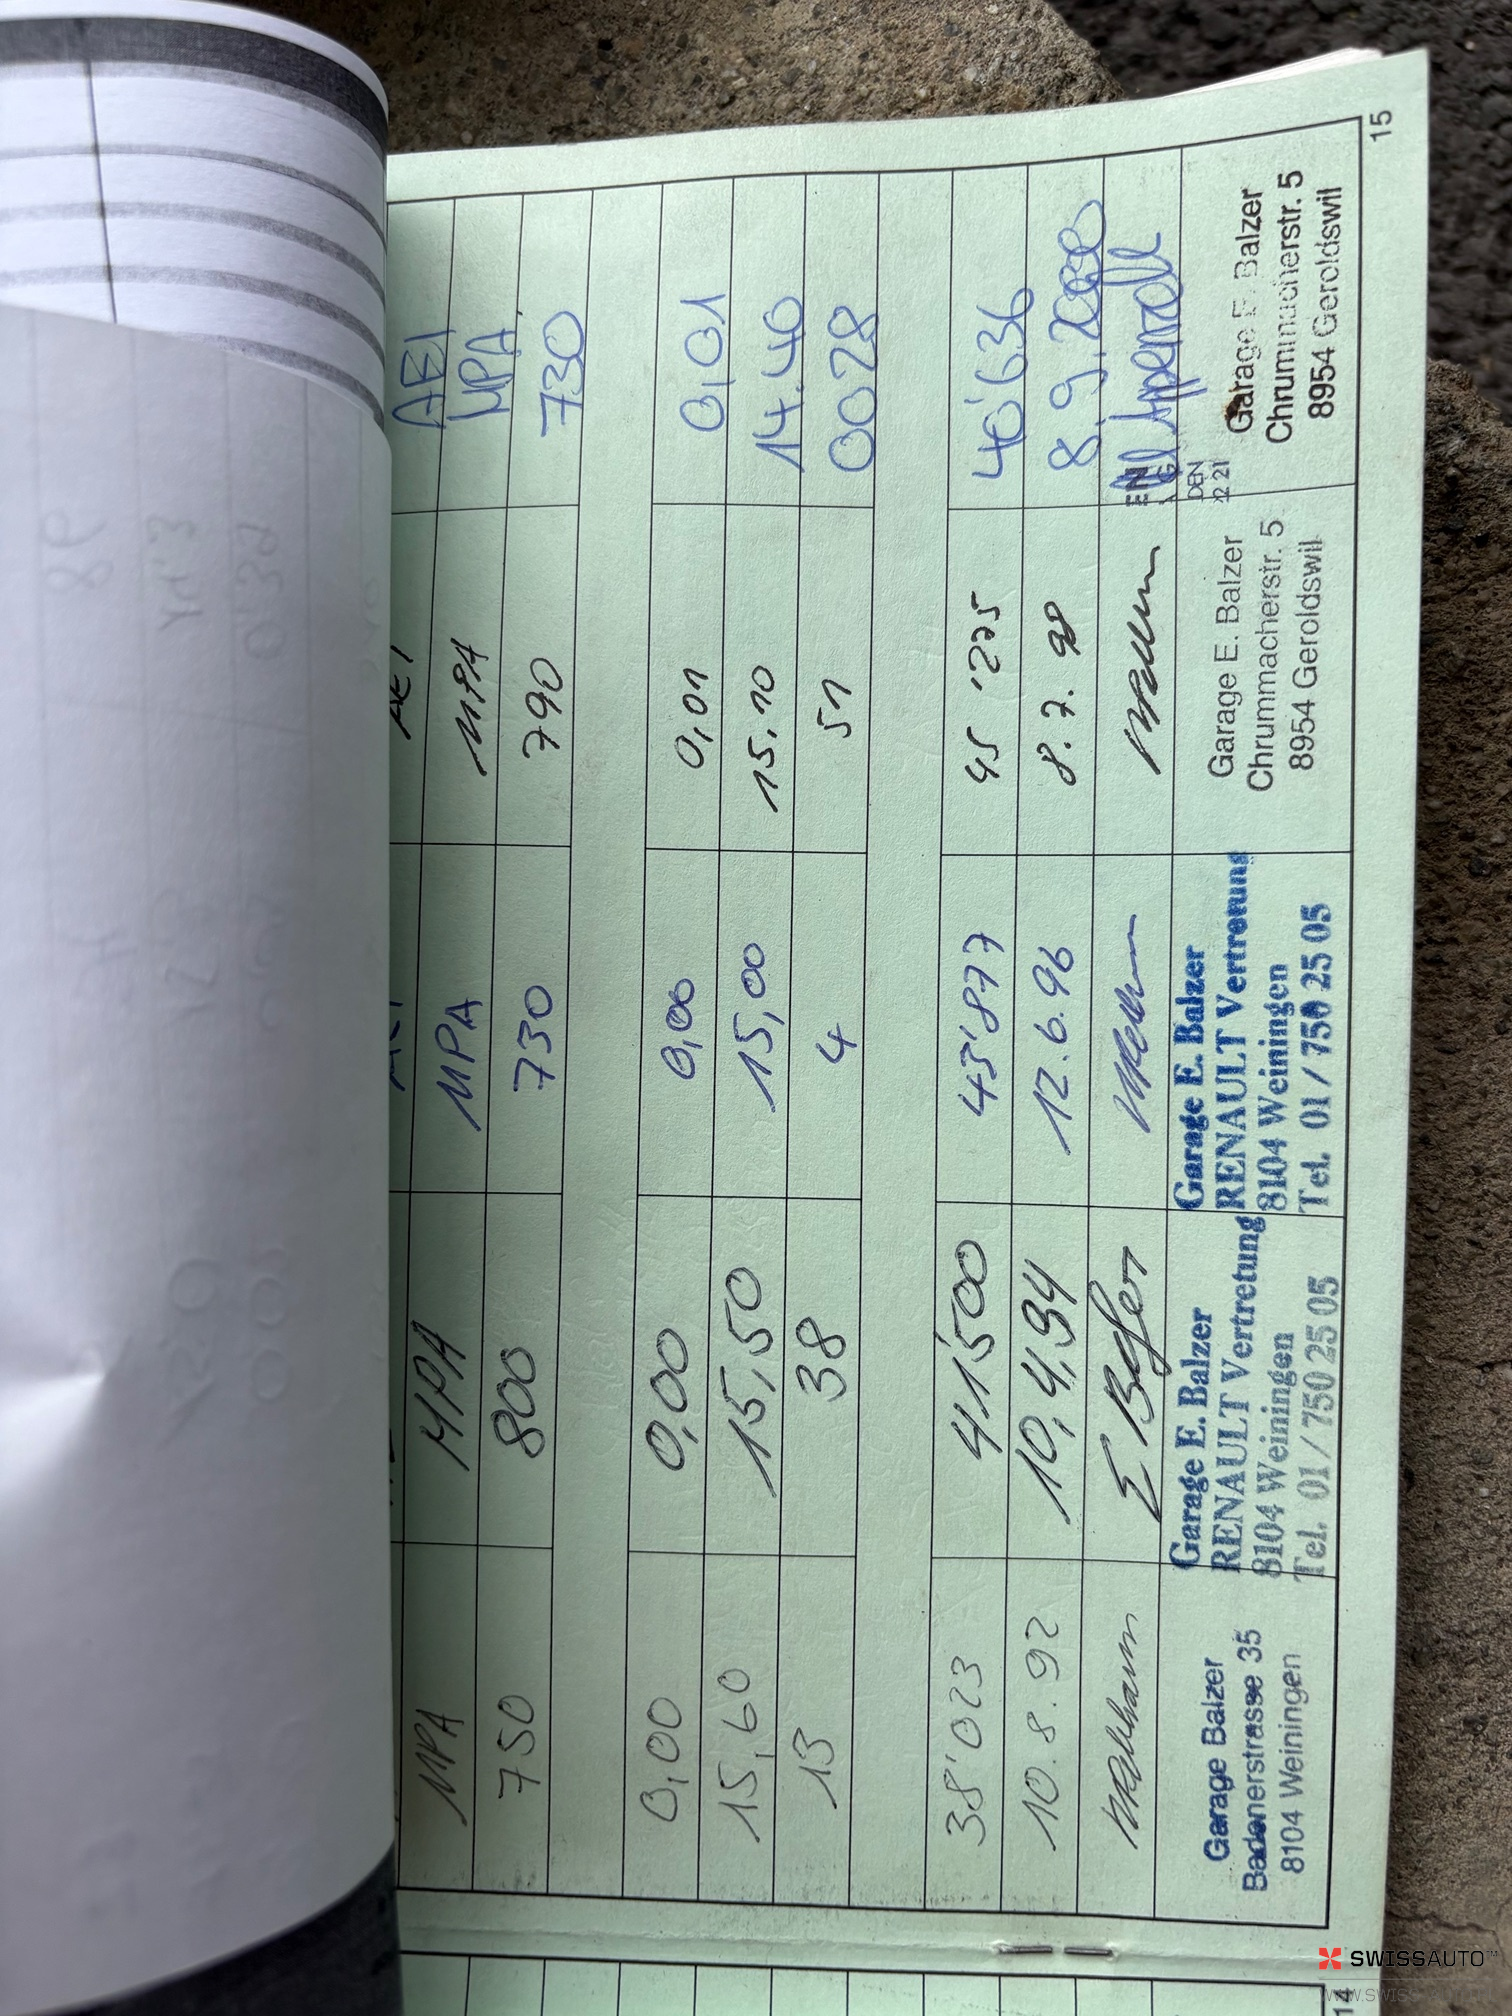 MPA
MPA
MPA
MPA
AEI
MPA
750
800
730
790
730
0,00
0,00
0,00
0,01
0,01
15,60
15,50
15,00
15.10
14.40
13
38
4
51
0028
38'023
41'500
43'877
45'225
40'636
10.8.92
10,4,94
12.6.96
8.7.98
8.9.2000
Garage Balzer
Badenerstrasse 35
8104 Weiningen
Garage E. Balzer
RENAULT Vertretung
8104 Weiningen
Tel. 01/750 25 05
Garage E. Balzer
RENAULT Vertretung
8104 Weiningen
Tel. 01/750 25 05
Garage E. Balzer
Chrummacherstr. 5
8954 Geroldswil
Garage E. Balzer
Chrummacherstr. 5
8954 Geroldswil
15
14
SWISSAUTO™
WWW.SWISS